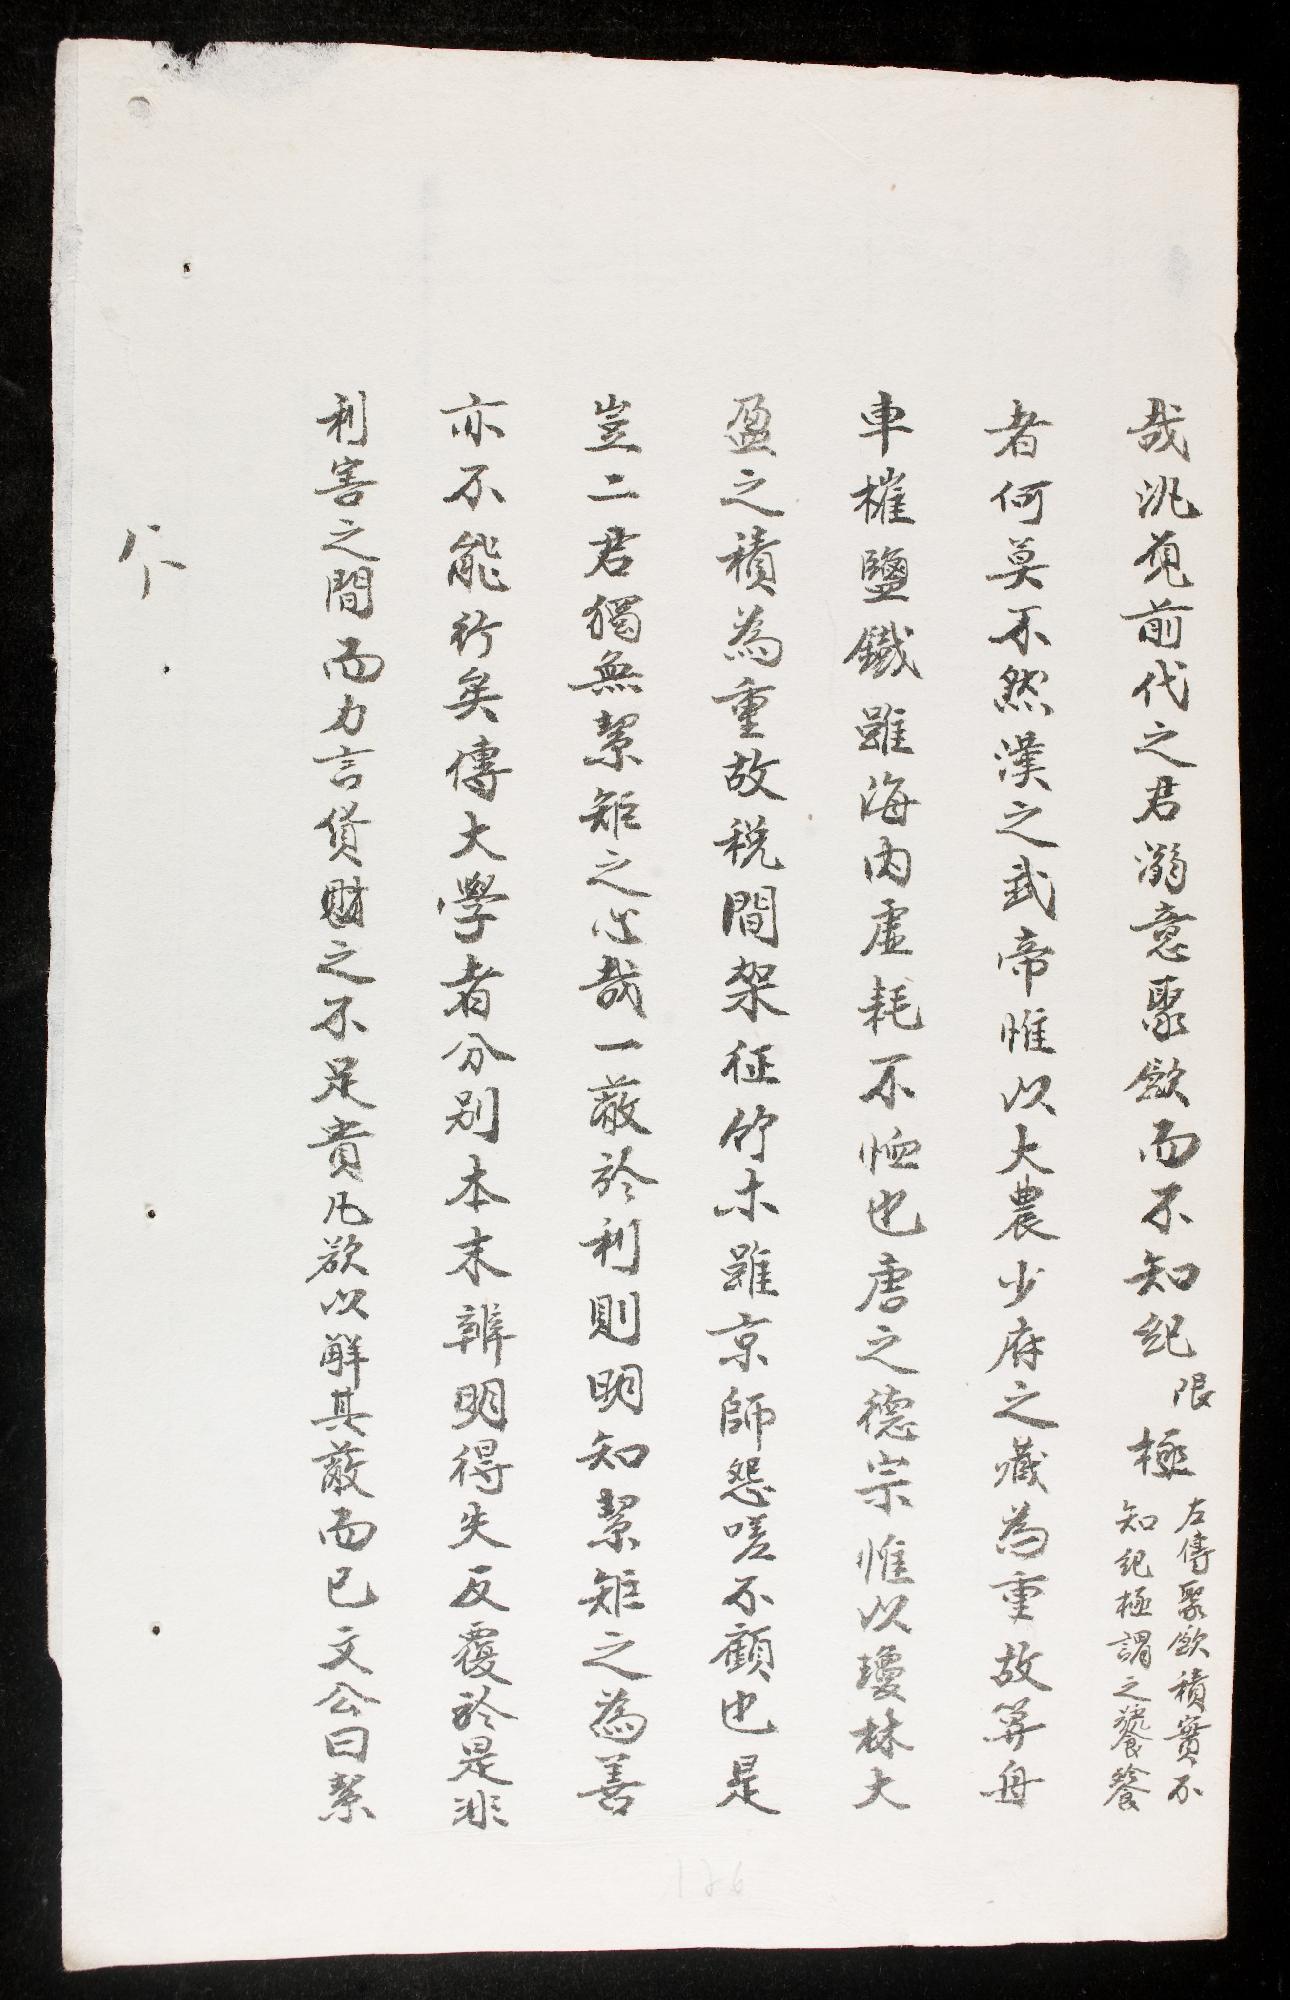 哉洮覔前代之君溺意聚歛而不知紀限極左傳聚歛積實不知紀極謂之饕餮
者何莫不然漢之武帝惟以大農少府之藏為重故筭舟
車榷鹽鐵雖海内虛耗不恤也唐之德宗惟以瓊林大
盈之積為重故税間架征竹木雖京師怨嗟不顧也是
豈二君獨無絜矩之心哉一蔽於利則明知絜矩之為善
亦不能行矣傳大學者分别本末辨明得失反覆於是非
利害之間而力言貨財之不足貴凡欲以解其蔽而已文公曰絜